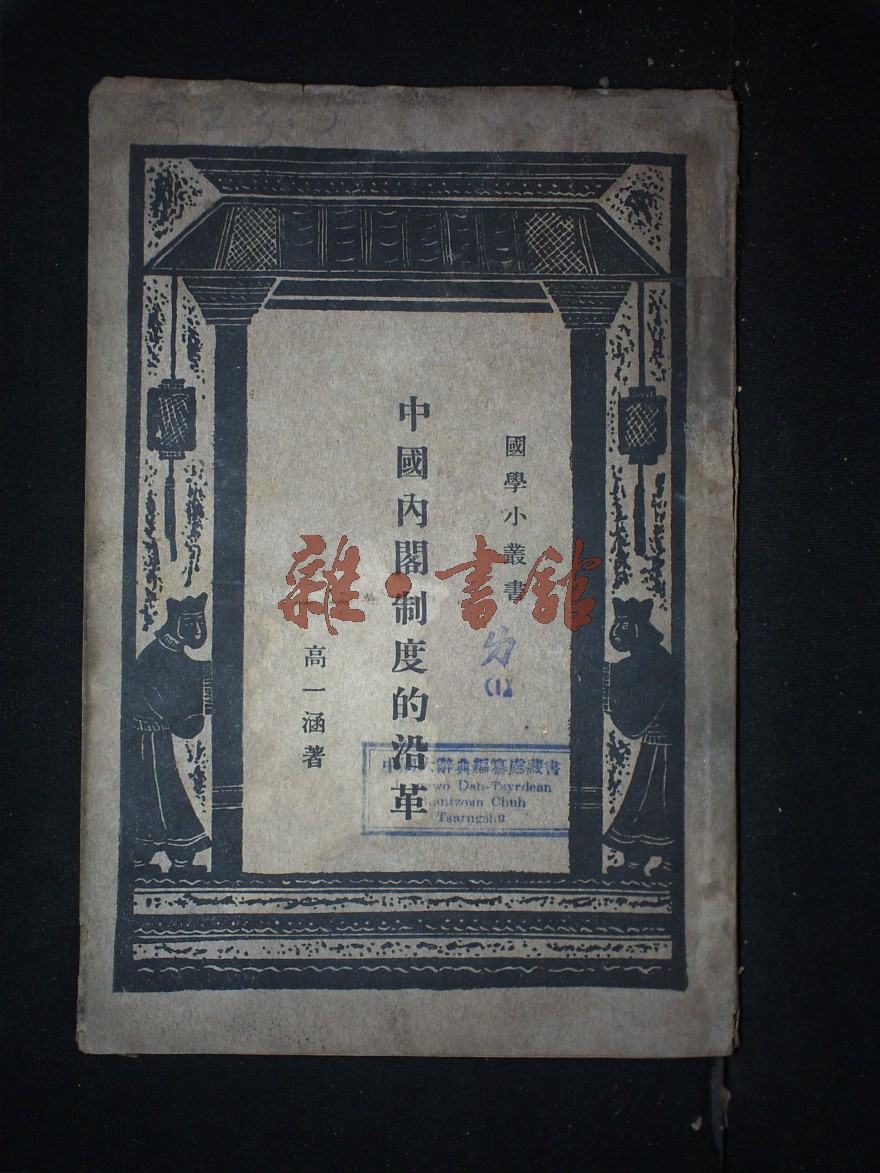 國學小叢書
中國內閣制度的沿革
高一涵著
雜·書館
(1)
中 大辭典編纂處藏書
Dah-Tsyrdean
Chuh
Tsarngshu